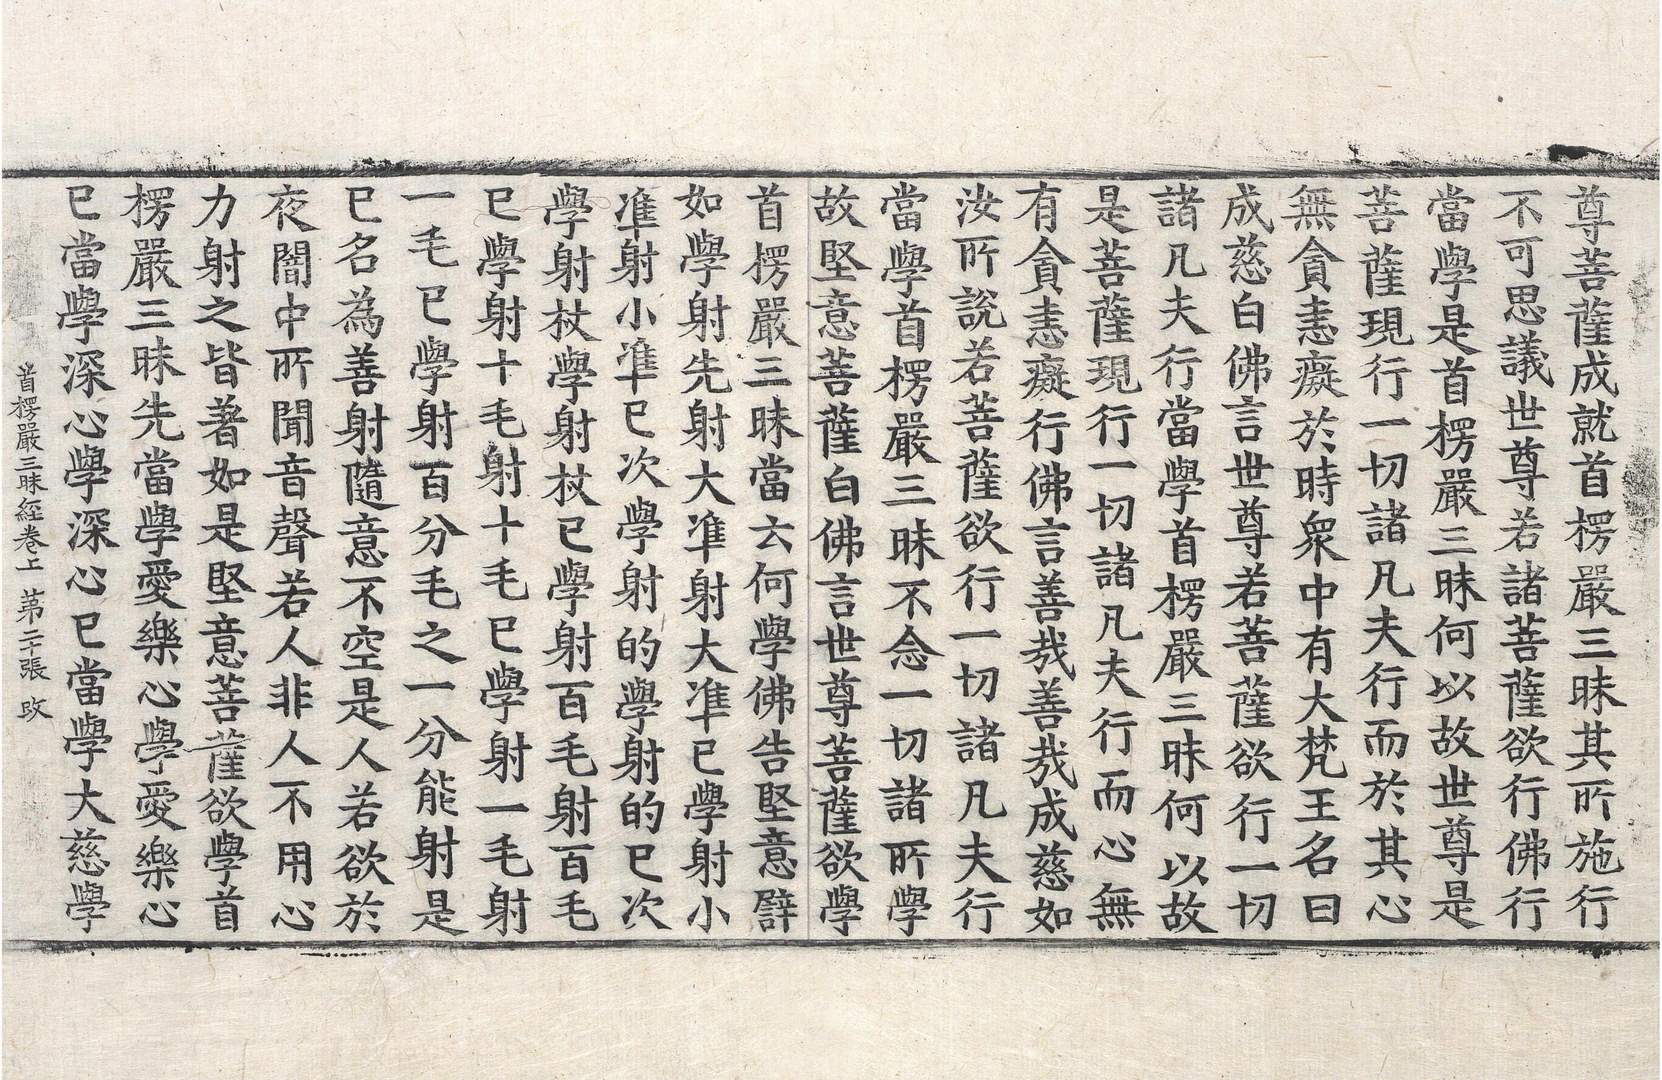 尊菩薩成就首楞嚴三昧其所施行
不可思議世尊若諸菩薩欲行佛行
當學是首楞嚴三昧何以故世尊是
菩薩現行一切諸凡夫行而於其心
無貪恚癡於時衆中有大梵王名曰
成慈白佛言世尊若菩薩欲行一切
諸凡夫行當學首楞嚴三昧何以故
是菩薩現行一切諸凡夫行而心無
有貪恚癡行佛言善哉善哉成慈如
汝所說若菩薩欲行一切諸凡夫行
當學首楞嚴三昧不念一切諸所學
故堅意菩薩白佛言世尊菩薩欲學
首楞嚴三昧當云何學佛告堅意譬
如學射先射大準射大準已學射小
準射小準已次學射的學射的已次
學射杖學射杖已學射百毛射百毛
已學射十毛射十毛已學射一毛射
一毛已學射百分毛之一分能射是
已名為善射隨意不空是人若欲於
夜闇中所聞音聲若人非人不用心
力射之皆著如是堅意菩薩欲學首
楞嚴三昧先當學愛樂心學愛樂心
已當學深心學深心已當學大慈學
首楞嚴三昧経卷上 第二十張 改